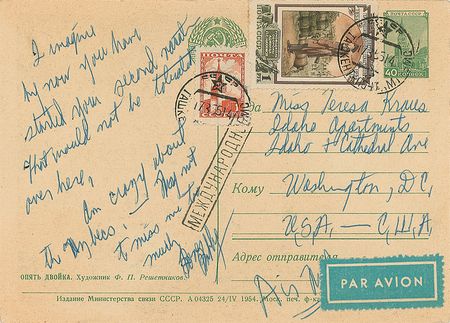 I imagine
by now you have
started your second
That would not be tolerated
over here,
Am crazy about
the Uzbecs. — Try not
to miss me too
much
МЕЖДУНАРОДНОЕ
ПОЧТА СССР
40
КОПЕЕК
Куда Miss Teresa Kraus
Idaho Apartments
Idaho & Cathedral Ave
Кому Washington, D.C.
U.S.A — С.Ш.А.
Адрес отправителя
Air
PAR AVION
ОПЯТЬ ДВОЙКА. Художник Ф. П. Решетников
Издание Министерства связи СССР. А 04325 24/IV 1954.